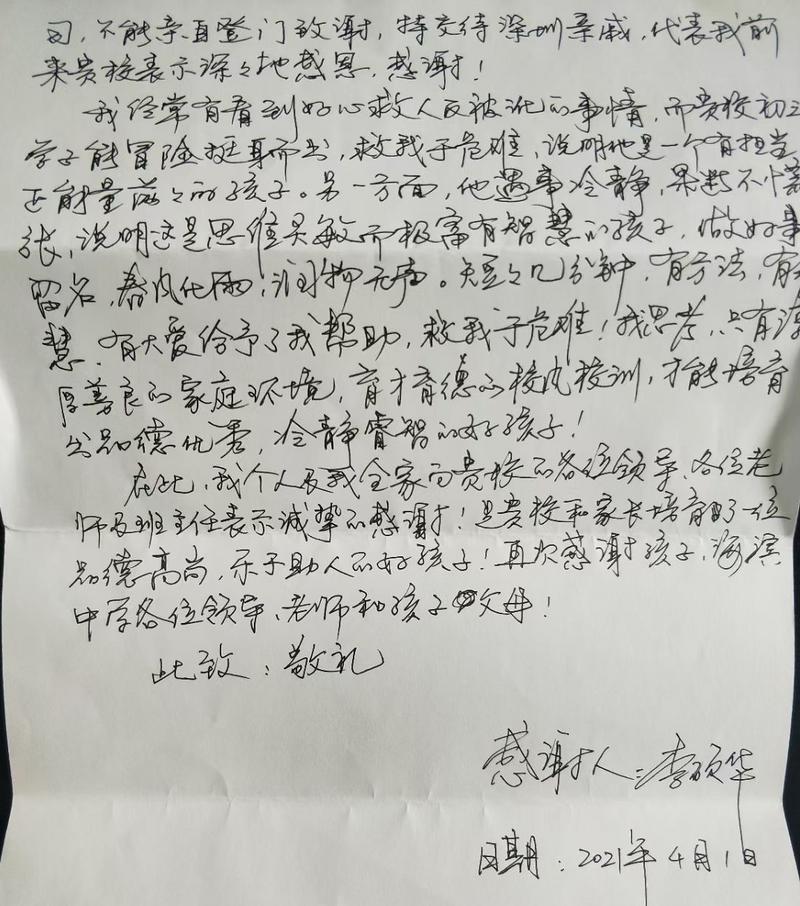 司，不能亲自登门致谢，特交待深圳亲戚，代表我前
来贵校表示深々地感恩，感谢！
我经常有看到好心救人反被讹的事情，而贵校初三
学子能冒险挺身而出，救我于危难，说明他是一个有担当
正能量满々的孩子。另一方面，他遇事冷静，果断不慌
张，说明这是思维灵敏而极富有智慧的孩子，做好事
留名，春风化雨，润物无声。短短々几分钟，有方法，有
慧，有大爱给予了我帮助，救我于危难！我思考，只有淳
厚善良的家庭环境，育才育德的校风校训，才能培育
出品德优秀，冷静睿智的好孩子！
在此，我个人及我全家向贵校的各位领导、各位老
师及班主任表示诚挚的感谢！是贵校和家长培育了一位
品德高尚，乐于助人的好孩子！再次感谢孩子，海滨
中学各位领导、老师和孩子父母！
此致：敬礼
感谢人：李硕华
日期：2021年4月1日